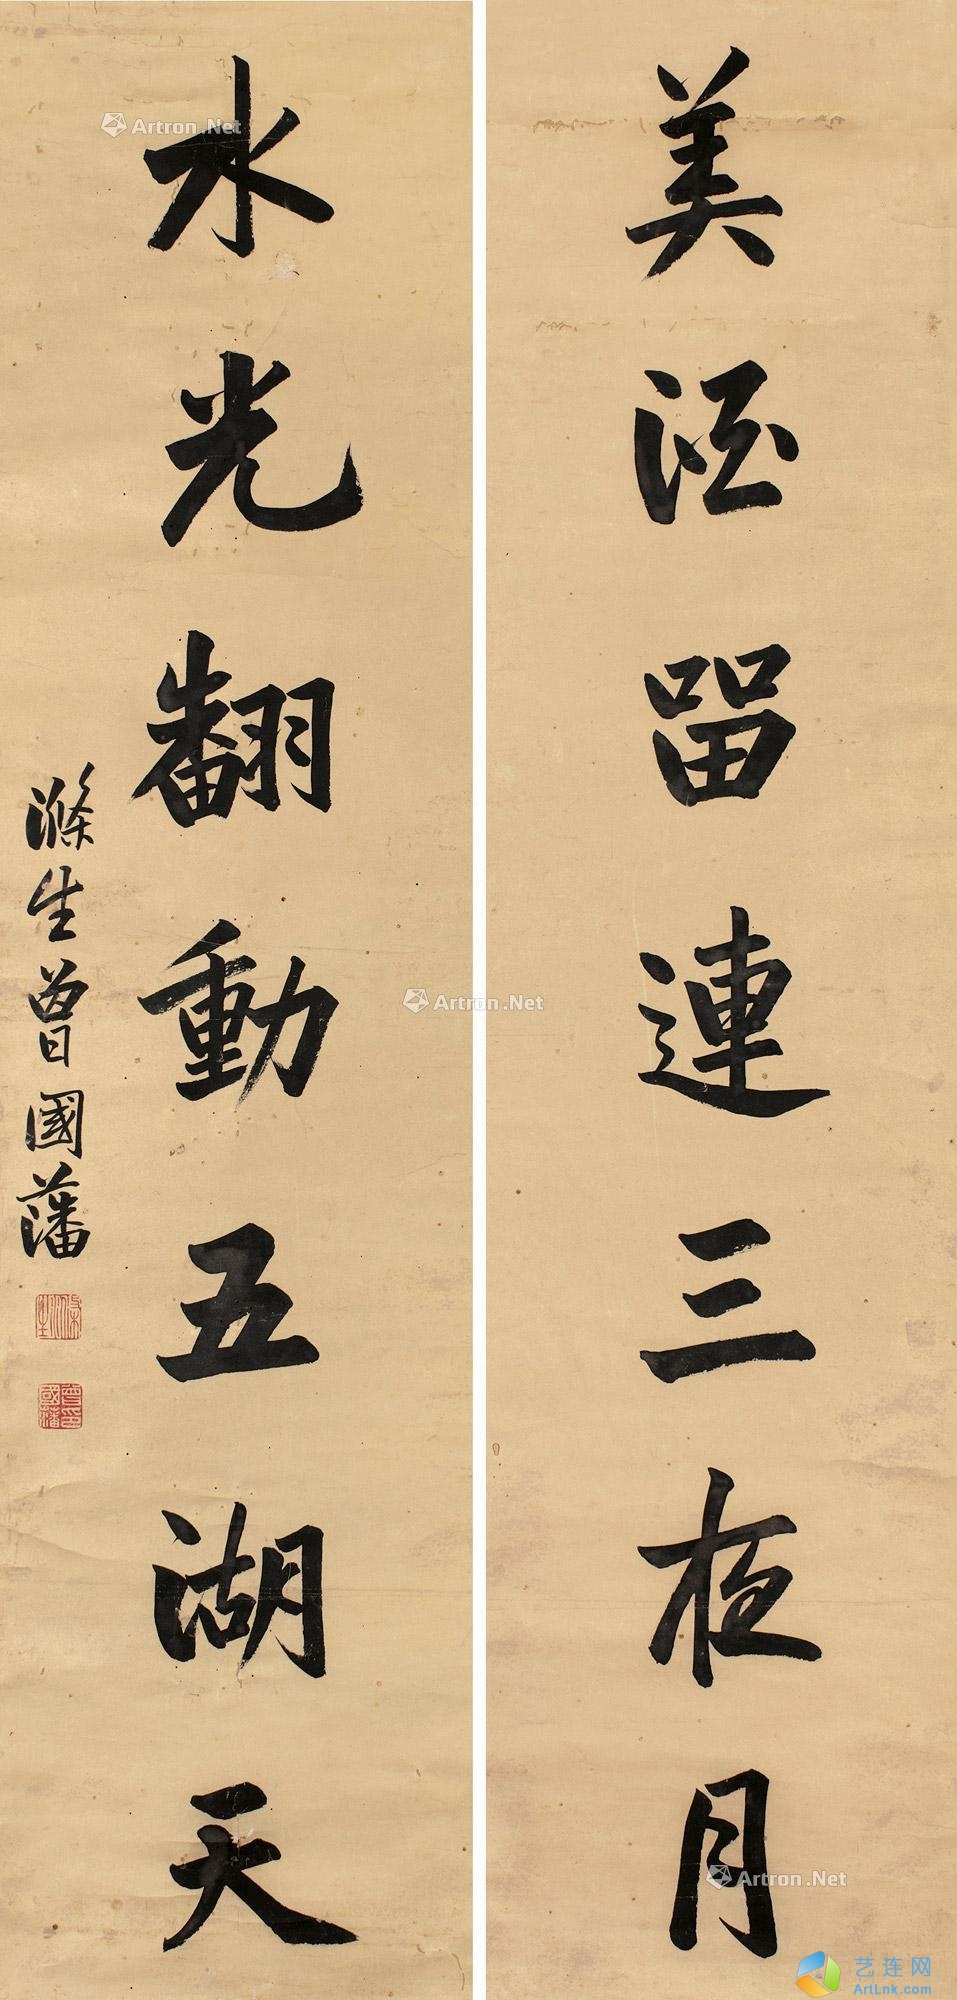 美酒留連三夜月
水光翻動五湖天
滌生曾國藩
滌生
曾國藩印
Artron.Net
Artron.Net
Artron.Net
艺连网
ArtLnk.com